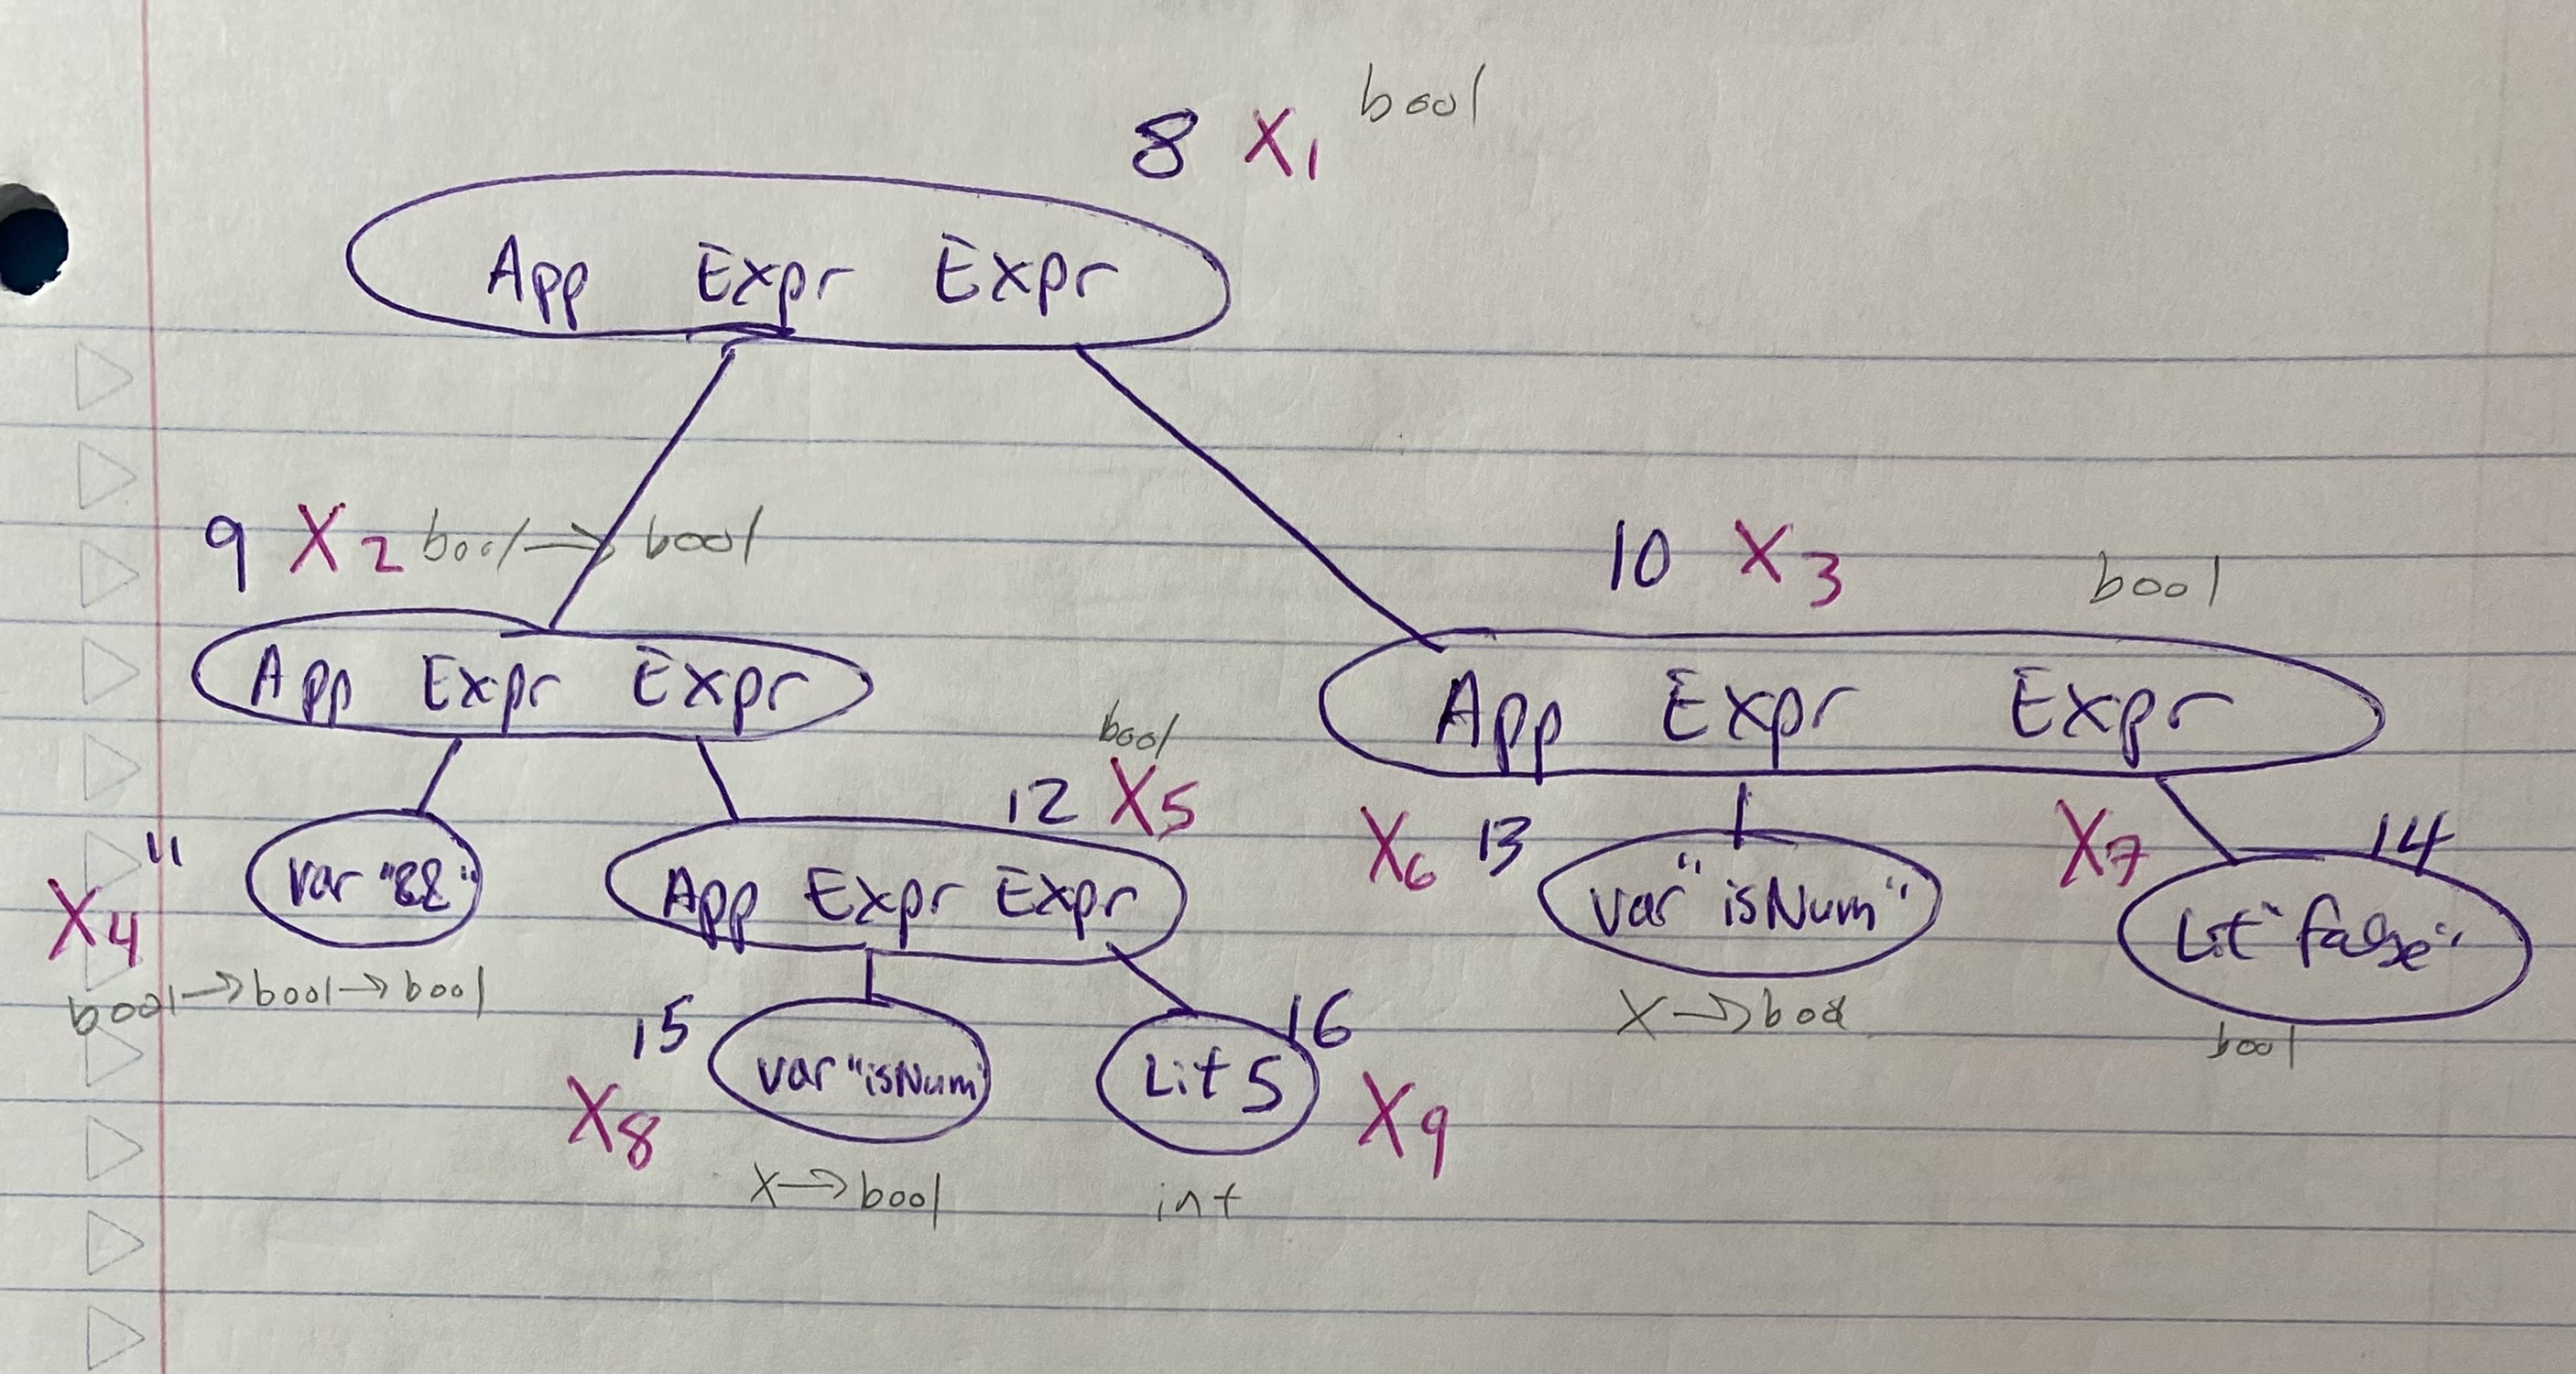 8 X1 bool
App Expr Expr
9 X2 bool → bool
10 X3 bool
App Expr Expr
App Expr Expr
X4 11
var "&&"
bool → bool → bool
12 X5 bool
App Expr Expr
X6 13
var "isNum"
X → bool
X7 14
Lit "false"
bool
15 X8
var "isNum"
X → bool
16 X9
Lit 5
int